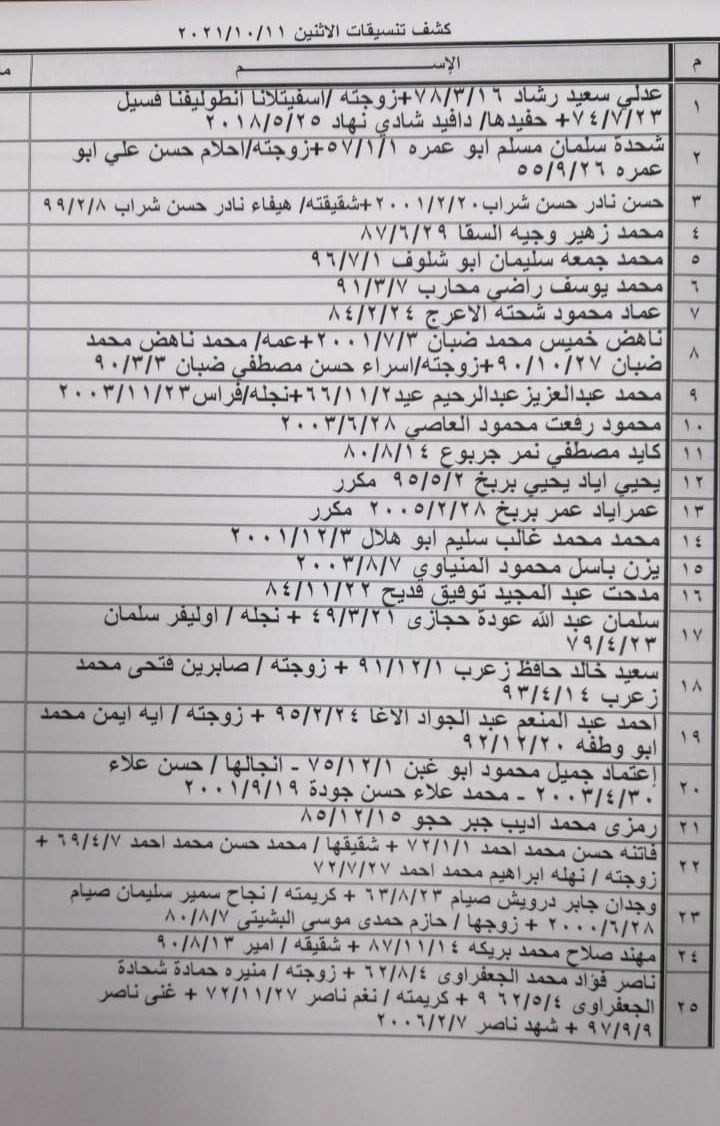 كشف تنسيقات الاثنين ٢٠٢١/١٠/١١
م الإســـــم
١ عدلي سعيد رشاد ٧٨/٣/١٦+زوجته /اسفيتلانا انطوليفنا فسيل
٧٤/٧/٢٣+ حفيدها/ دافيد شادي نهاد ٢٠١٨/٥/٢٥
٢ شحدة سلمان مسلم ابو عمره ٥٧/١/١+زوجته/احلام حسن علي ابو
عمره ٥٥/٩/٢٦
٣ حسن نادر حسن شراب٢٠٠١/٢/٢٠+شقيقته/ هيفاء نادر حسن شراب ٩٩/٢/٨
٤ محمد زهير وجيه السقا ٨٧/٦/٢٩
٥ محمد جمعه سليمان ابو شلوف ٩٦/٧/١
٦ محمد يوسف راضي محارب ٩١/٣/٧
٧ عماد محمود شحته الاعرج ٨٤/٢/٢٤
٨ ناهض خميس محمد ضبان ٢٠٠١/٧/٣+عمه/ محمد ناهض محمد
ضبان ٩٠/١٠/٢٧+زوجته/اسراء حسن مصطفي ضبان ٩٠/٣/٣
٩ محمد عبدالعزيزعبدالرحيم عيد٦٦/١١/٢+نجله/فراس٢٠٠٣/١١/٢٣
١٠ محمود رفعت محمود العاصي ٢٠٠٣/٦/٢٨
١١ كايد مصطفي نمر جربوع ٨٠/٨/١٤
١٢ يحيي اياد يحيي بربخ ٩٥/٥/٢ مكرر
١٣ عمراياد عمر بربخ ٢٠٠٥/٢/٢٨ مكرر
١٤ محمد محمد غالب سليم ابو هلال ٢٠٠١/١٢/٣
١٥ يزن باسل محمود المنياوي ٢٠٠٣/٨/٧
١٦ مدحت عبد المجيد توفيق قديح ٨٤/١١/٢٢
١٧ سلمان عبد الله عودة حجازى ٤٩/٣/٢١ + نجله / اوليفر سلمان
٧٩/٤/٢٣
١٨ سعيد خالد حافظ زعرب ٩١/١٢/١ + زوجته / صابرين فتحى محمد
زعرب ٩٣/٤/١٤
١٩ احمد عبد المنعم عبد الجواد الاغا ٩٥/٢/٢٤ + زوجته / ايه ايمن محمد
ابو وطفه ٩٢/١٢/٢٠
٢٠ إعتماد جميل محمود ابو غبن ٧٥/١٢/١ - انجالها / حسن علاء
٢٠٠٣/٤/٣٠ - محمد علاء حسن جودة ٢٠٠١/٩/١٩
٢١ رمزى محمد اديب جبر حجو ٨٥/١٢/١٥
٢٢ فاتنه حسن محمد احمد ٧٢/١/١ + شقيقها / محمد حسن محمد احمد ٦٩/٤/٧ +
زوجته / نهله ابراهيم محمد احمد ٧٢/٧/٢٧
٢٣ وجدان جابر درويش صيام ٦٣/٨/٢٣ + كريمته / نجاح سمير سليمان صيام
٢٠٠٠/٦/٢٨ + زوجها / حازم حمدى موسى البشيتى ٨٠/٨/٧
٢٤ مهند صلاح محمد بريكه ٨٧/١١/١٤ + شقيقه / امير ٩٠/٨/١٣
٢٥ ناصر فؤاد محمد الجعفراوى ٦٢/٨/٤ + زوجته / منيره حمادة شحادة
الجعفراوى ٦٢/٥/٤ ٩ + كريمته / نغم ناصر ٧٢/١١/٢٧ + غنى ناصر
٩٧/٩/٩ + شهد ناصر ٢٠٠٦/٢/٧